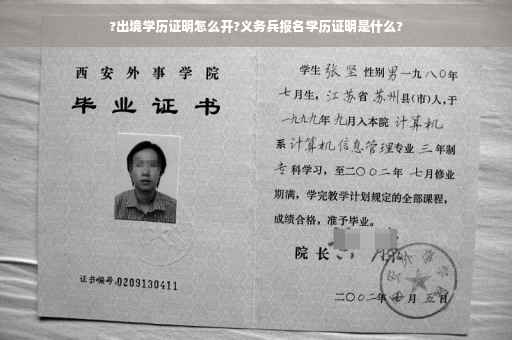 ?出境学历证明怎么开?义务兵报名学历证明是什么?
西安外事学院
毕业证书
证书编号:0209130411
学生 张坚 性别 男 一九八〇年
七月生，江苏省 苏州 县(市)人,于
一九九九年 九月入本院 计算机
系 计算机信息管理 专业 三 年制
专 科学习，至二〇〇二年 七月修业
期满，学完教学计划规定的全部课程，
成绩合格，准予毕业。
院长
二〇〇二年 七 月 五 日